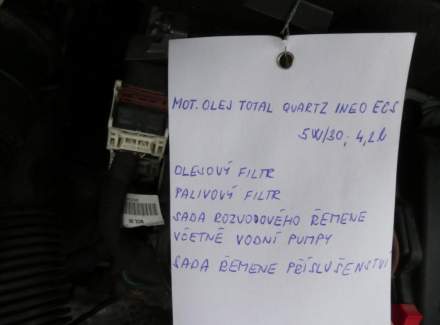 MOT. OLEJ TOTAL QUARTZ INEO ECS
5W/30, 4,2 l
OLEJOVÝ FILTR
PALIVOVÝ FILTR
SADA ROZVODOVÉHO ŘEMENE
VČETNĚ VODNÍ PUMPY
SADA ŘEMENE PŘÍSLUŠENSTVÍ